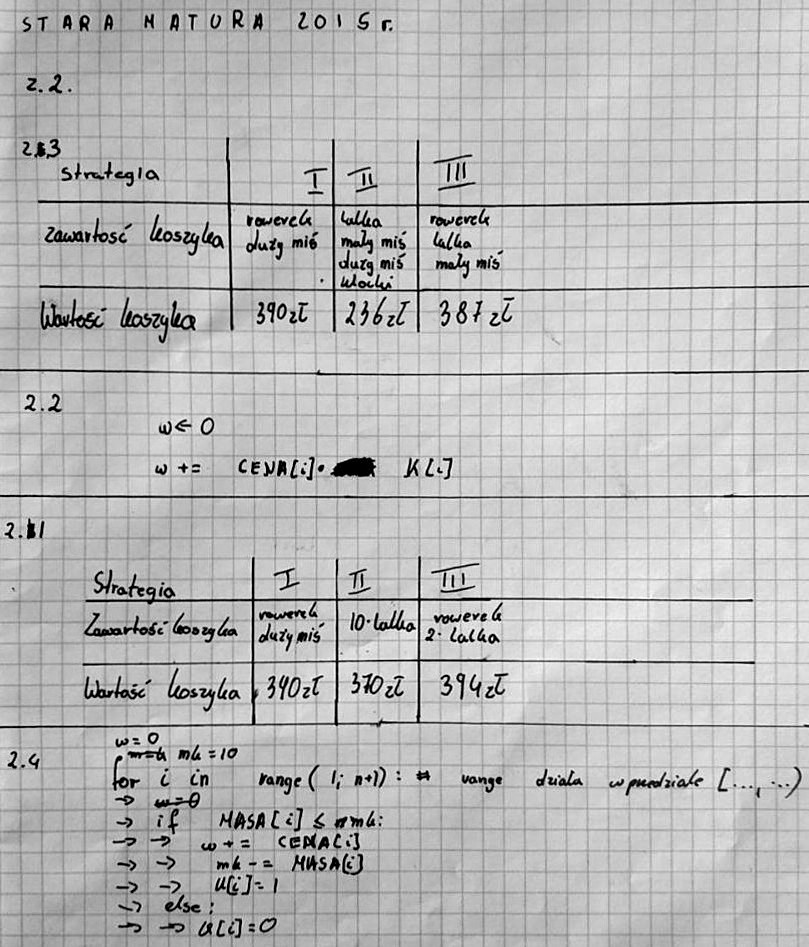 STARA MATURA 2015 r.
2.2.
2.3
Strategia I II III
Zawartość koszyka rowerek lalka rowerek
duży miś mały miś lalka
duży miś mały miś
klocki
Wartość koszyka 390zł 236zł 387zł
2.2
w ← 0
w += CENA[i]· K[i]
2.1
Strategia I II III
Zawartość koszyka rowerek 10·lalka rowerek
duży miś 2·lalka
Wartość koszyka 390zł 370zł 394zł
2.4
w=0
mk=10
for i in range(1; n+1): # range działa w przedziale [...,...)
→ w=0
→ if MASA[i] ≤ mk:
→ → w += CENA[i]
→ → mk -= MASA[i]
→ → K[i]=1
→ else:
→ → K[i]=0